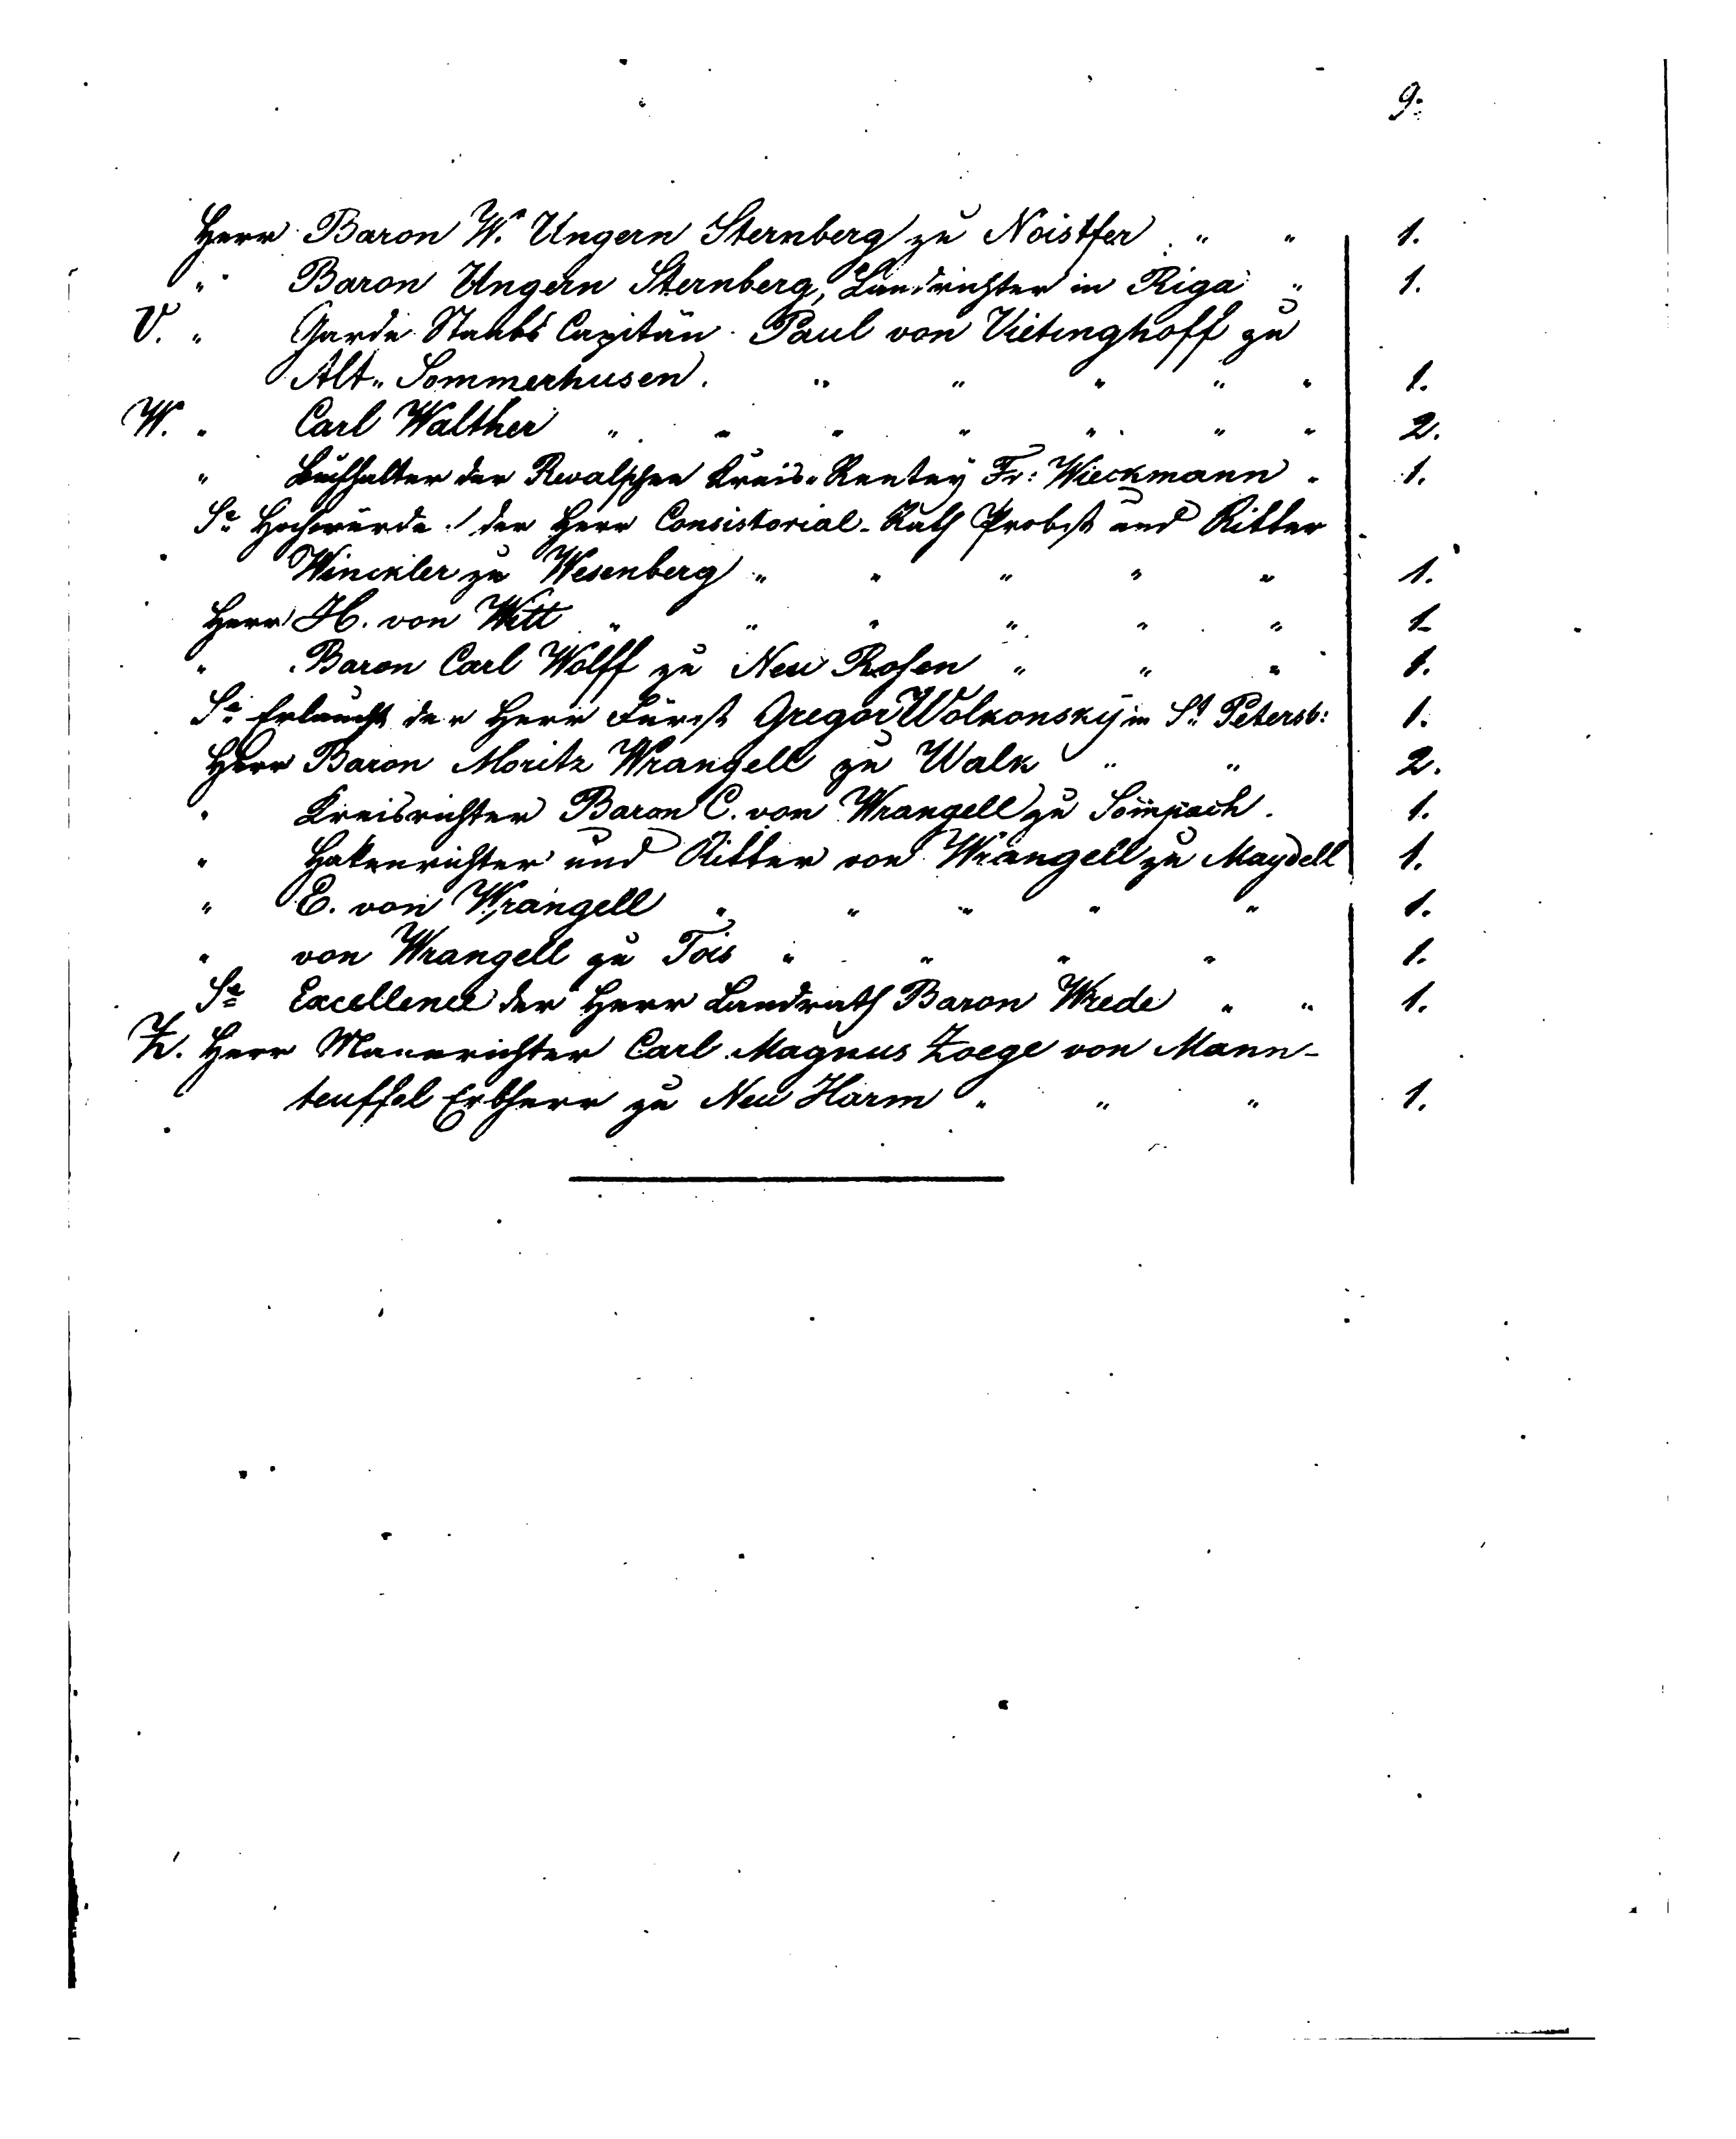 9.
Herr Baron W. Ungern Sternberg zu Noistfer " " 1.
" Baron Ungern Sternberg, Landrichter in Riga " 1.
V. " Garde Staabs Capitän Paul von Vietinghoff zu
Alt-Sommerhusen. " " " " " 1.
W. " Carl Walther " " " " " " " 2.
" Buchhalter der Revalschen Kreis-Rentey Fr: Wieckmann " 1.
Se Hochwürden der Herr Consistorial-Rath Probst und Ritter
Winckler zu Wesenberg " " " " " 1.
Herr H. von Witt " " " " " " 1.
" Baron Carl Wolff zu Neu Rosen " " " 1.
Se Erlaucht der Herr Fürst Gregor Wolkonsky in St Petersb: 1.
Herr Baron Moritz Wrangell zu Walk " " 2.
" Kreisrichter Baron C. von Wrangell zu Sompäch. 1.
" Hakenrichter und Ritter von Wrangell zu Maydell 1.
" E. von Wrangell " " " " " 1.
" von Wrangell zu Tois " " " " 1.
Se Excellence der Herr Landrath Baron Wrede " " 1.
Z. Herr Mannrichter Carl Magnus Zoege von Mann-
teuffel Erbherr zu Neu Harm " " " 1.